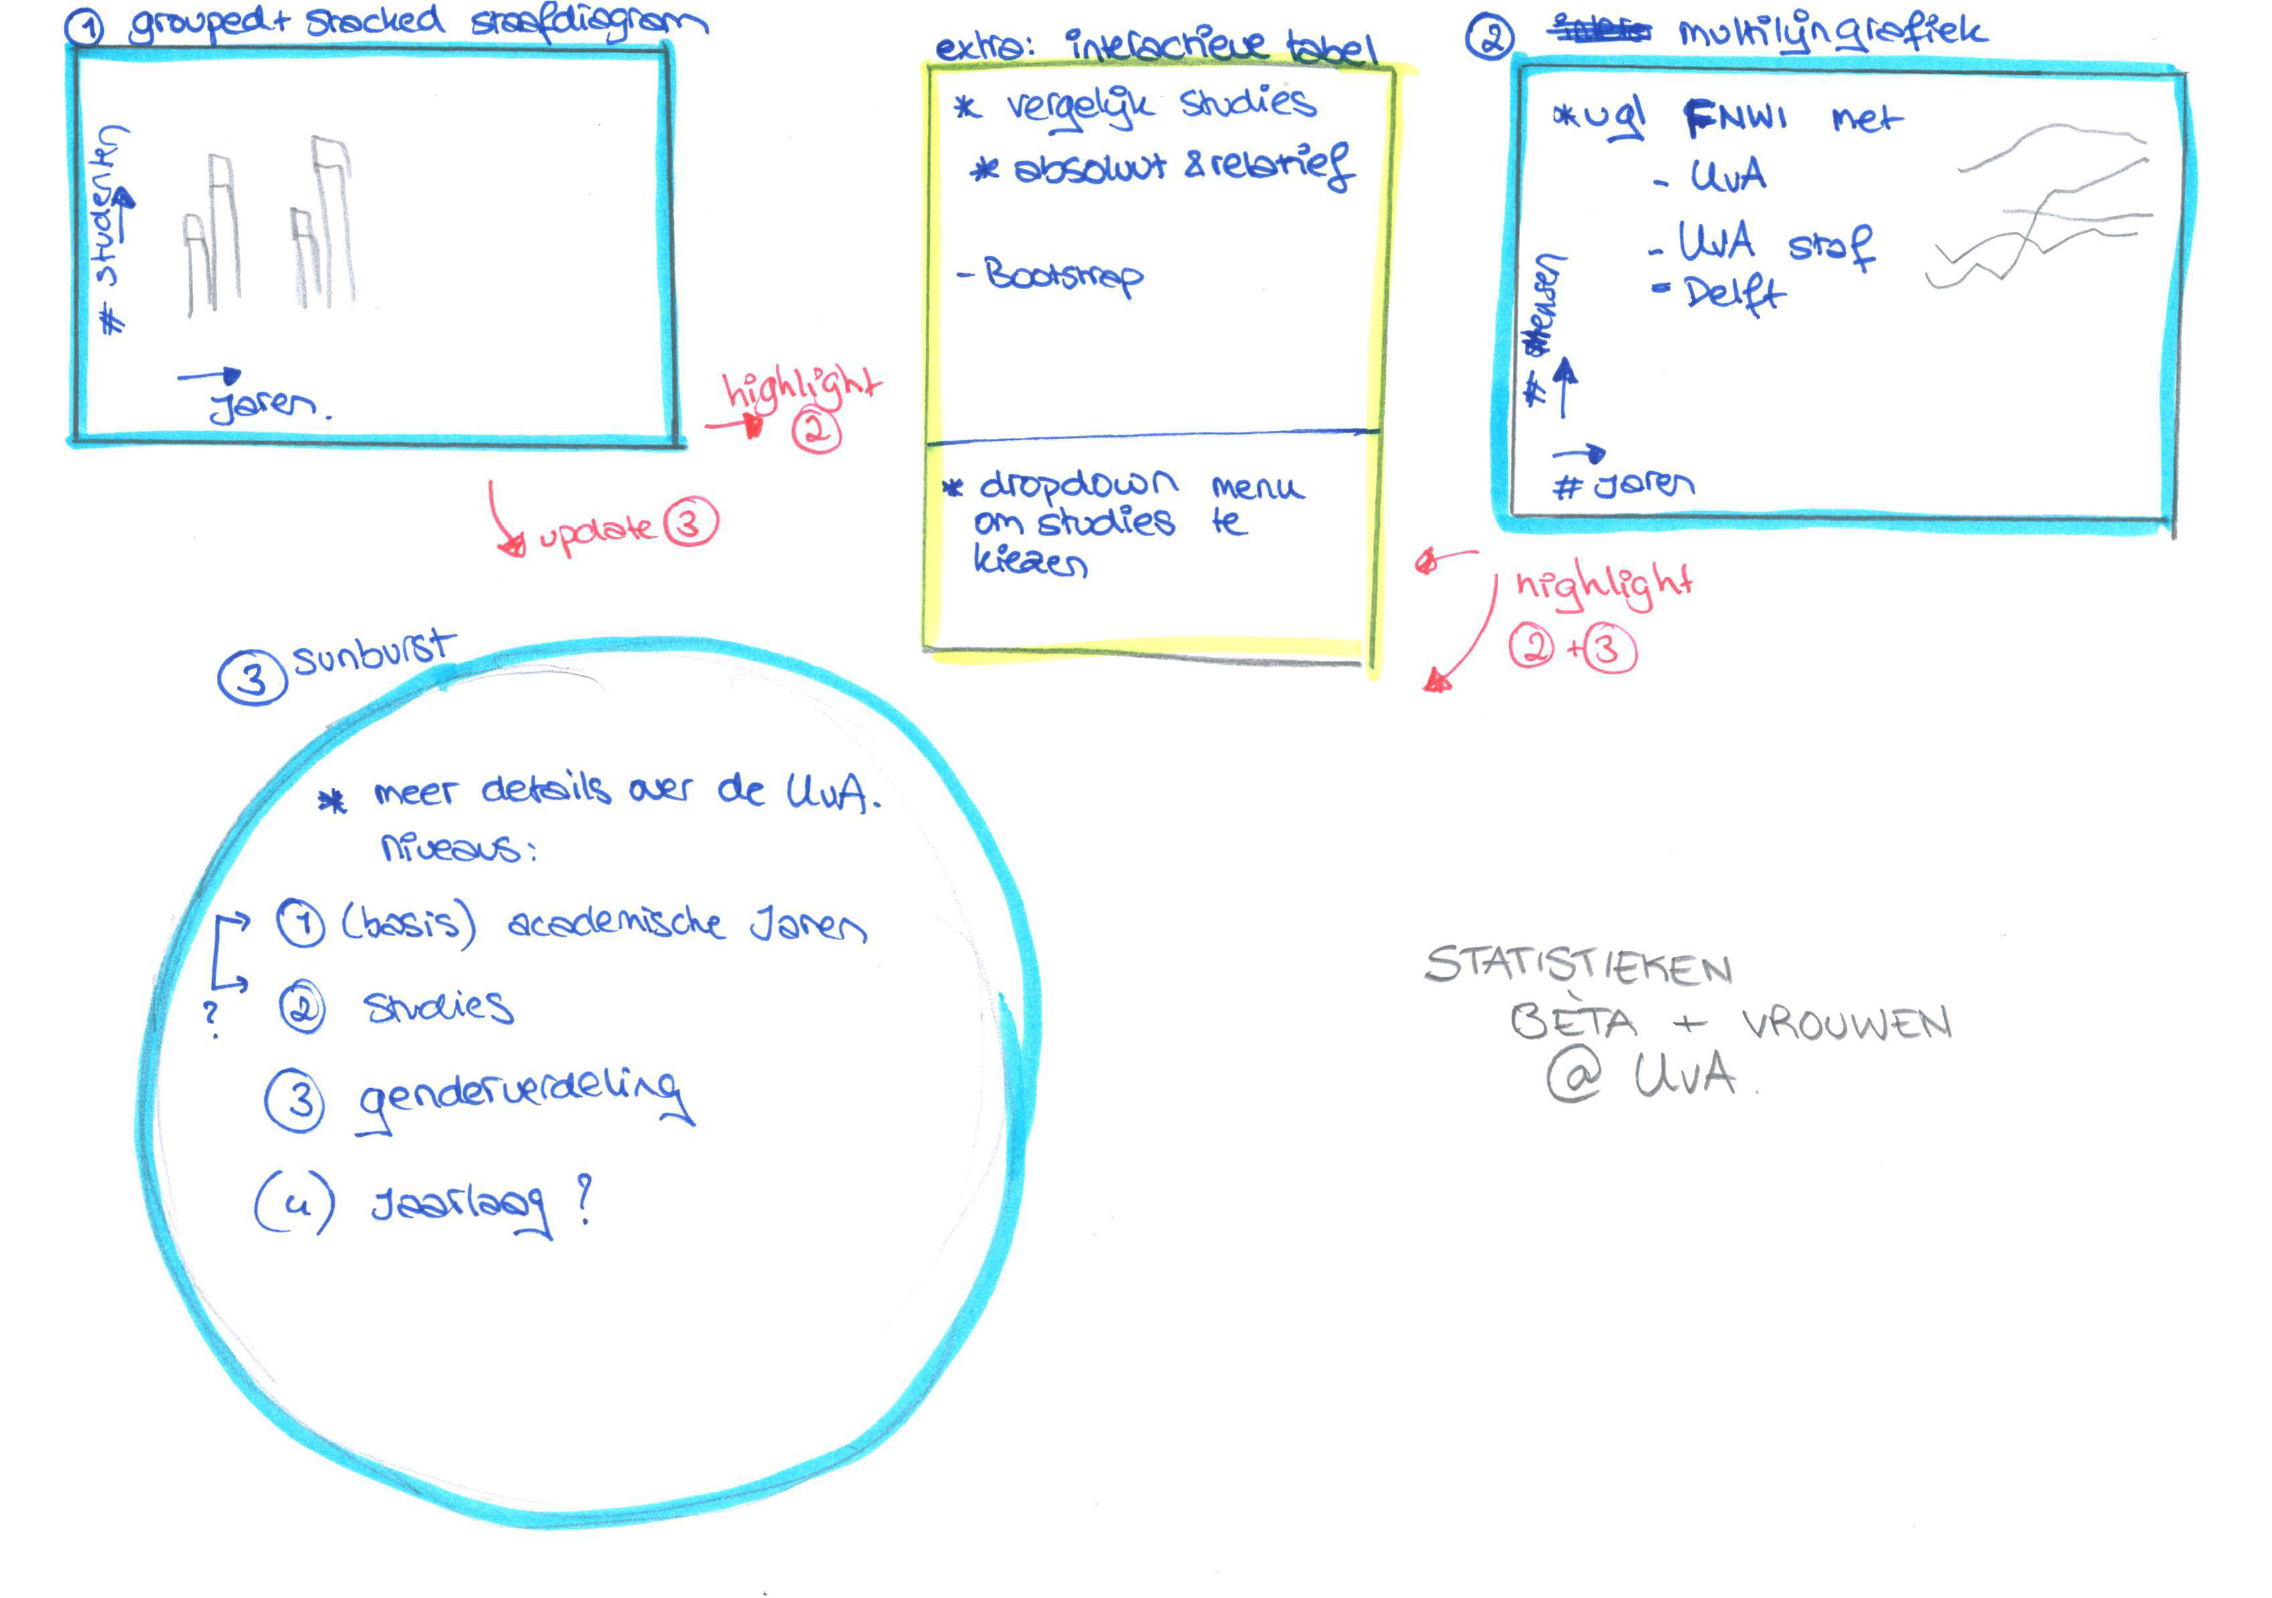 ① grouped + stacked staafdiagram
# studenten
Jaren.
highlight
②
update ③
extra: interactieve tabel
* vergelijk studies
* absoluut & relatief
- Bootstrap
* dropdown menu
om studies te
kiezen
② multilijngrafiek
* vgl FNWI met
- UvA
- UvA staf
- Delft
# mensen
# Jaren
highlight
② + ③
③ sunburst
* meer details over de UvA.
niveaus:
① (basis) academische Jaren
② studies
?
③ genderverdeling
(4) Jaarlaag ?
STATISTIEKEN
BÈTA + VROUWEN
@ UvA.